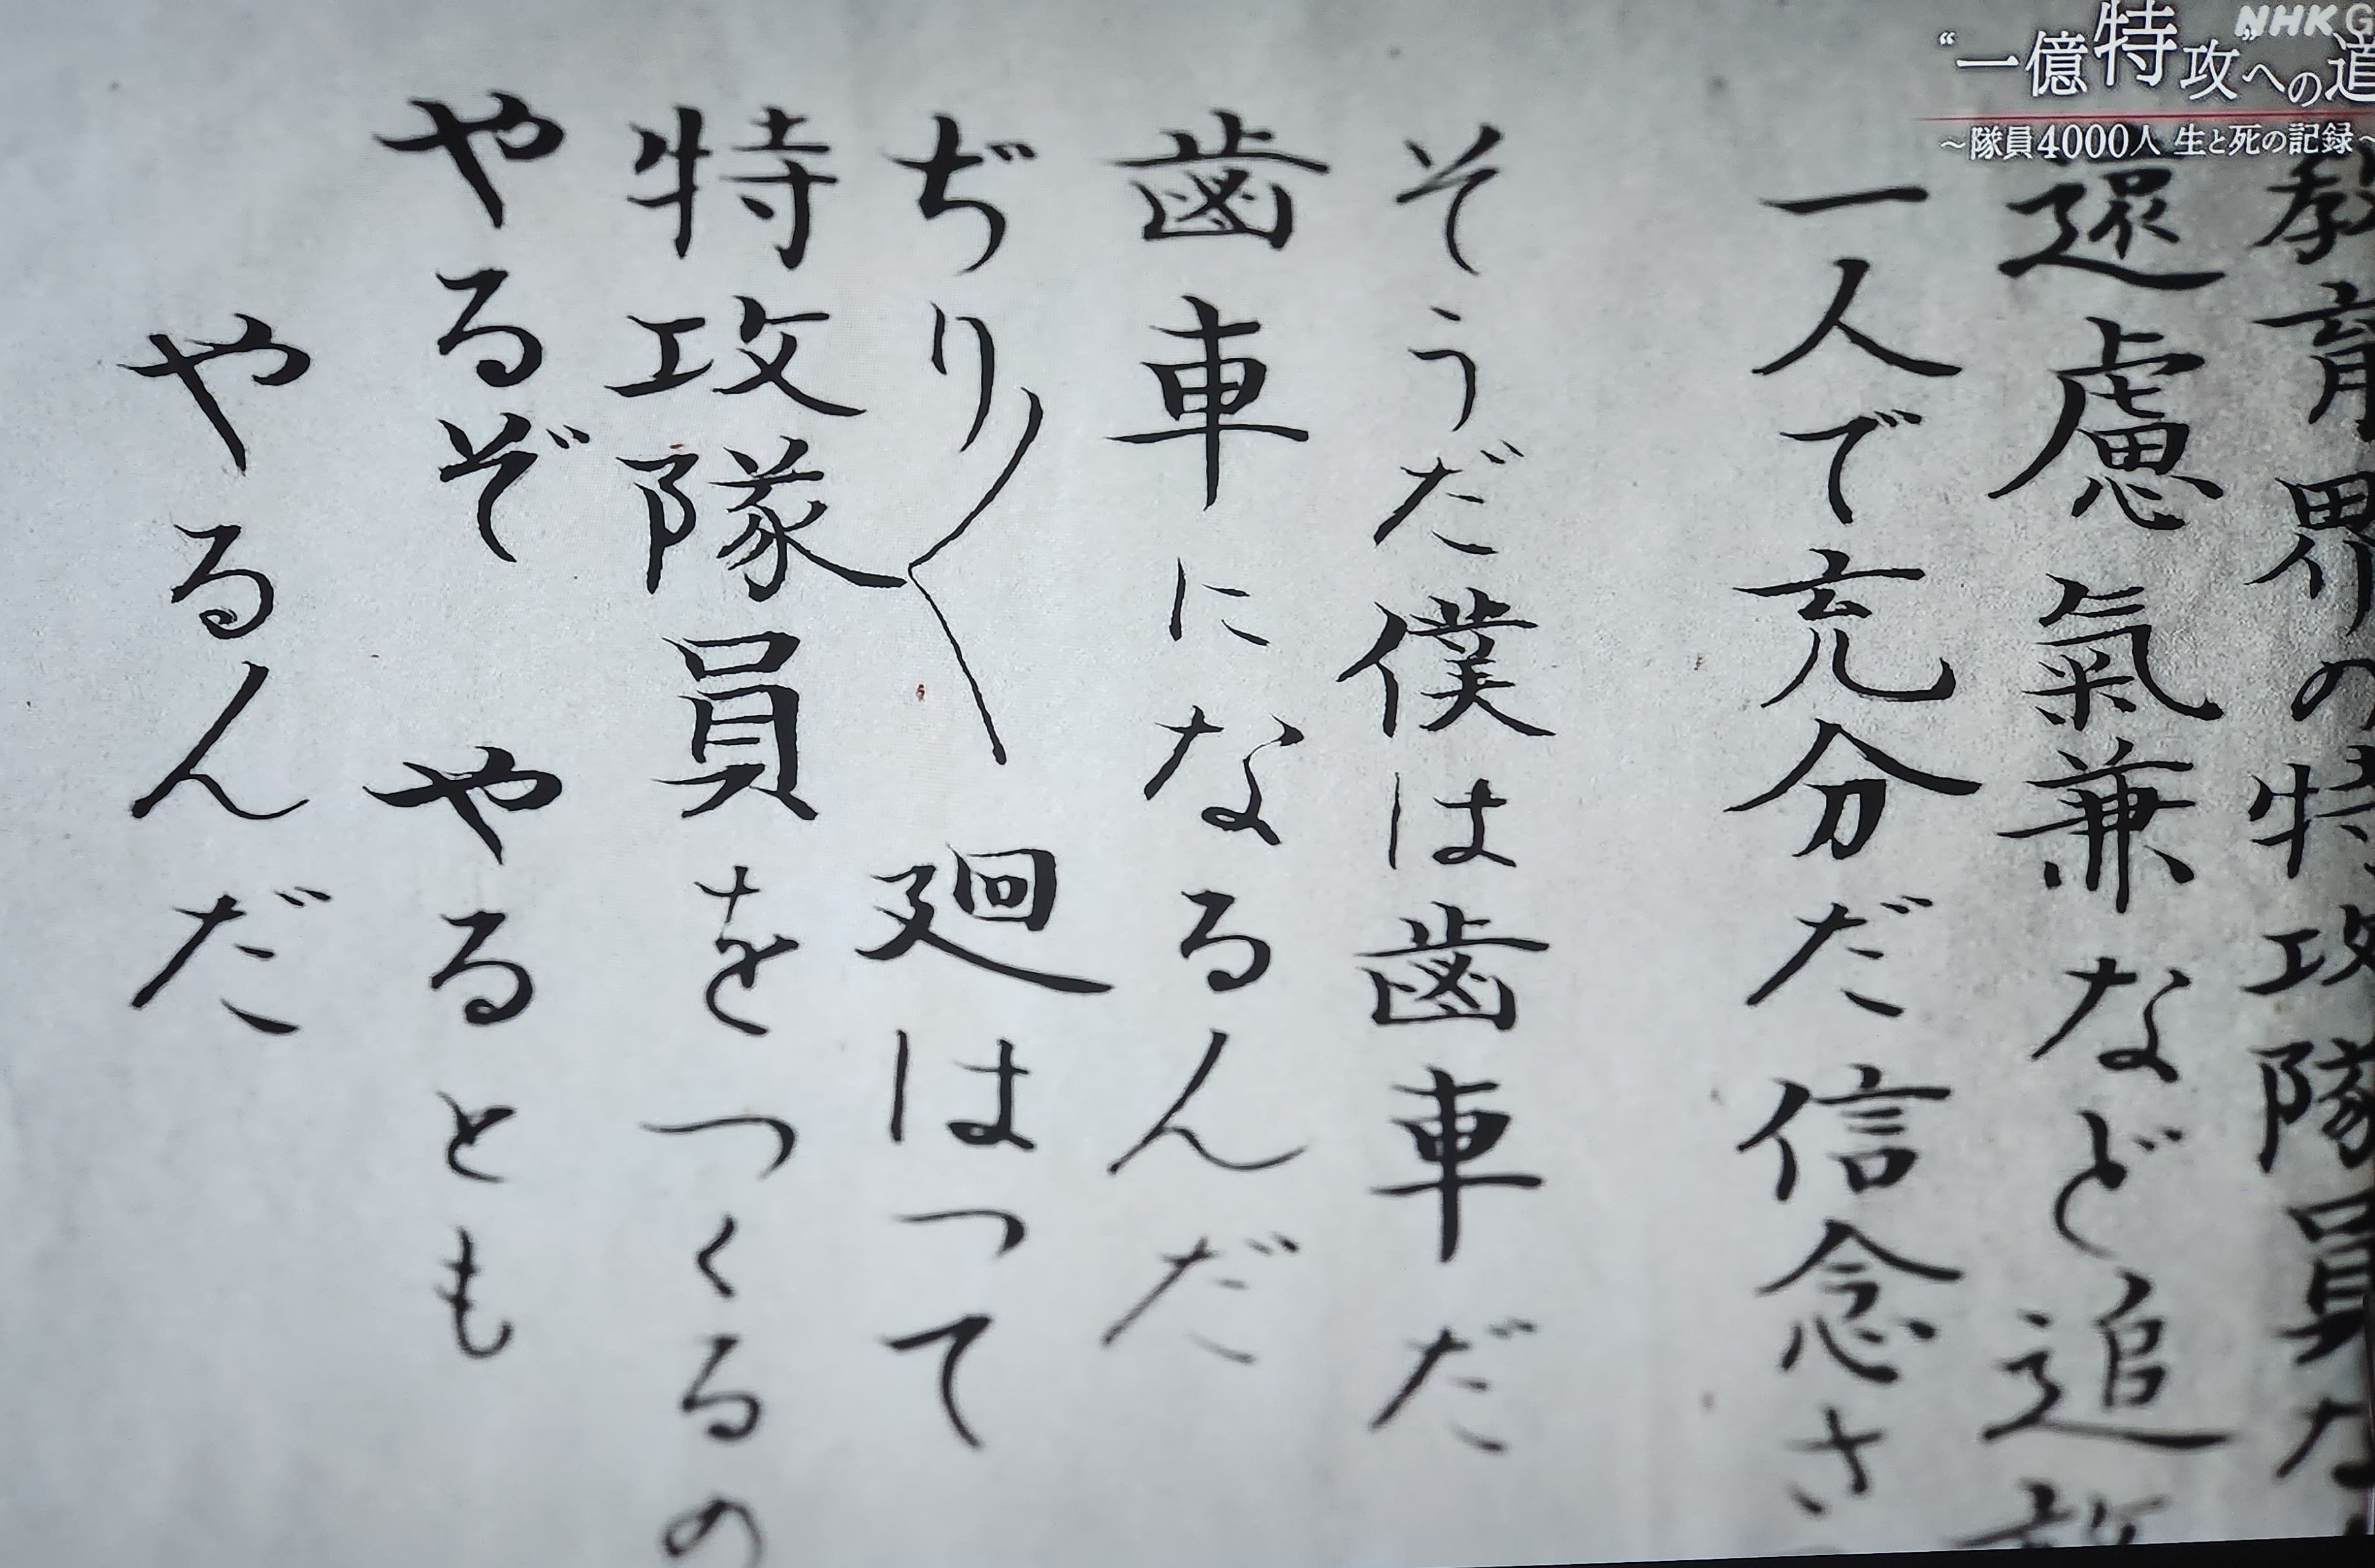 NHK G
“一億特攻”への道
~隊員4000人 生と死の記録~
教育界の特攻隊員
遠慮氣兼など追
一人で充分だ信念さ
そうだ僕は歯車だ
歯車になるんだ
ぢり〳〵廻はつて
特攻隊員をつくるの
やるぞ やるとも
やるんだ